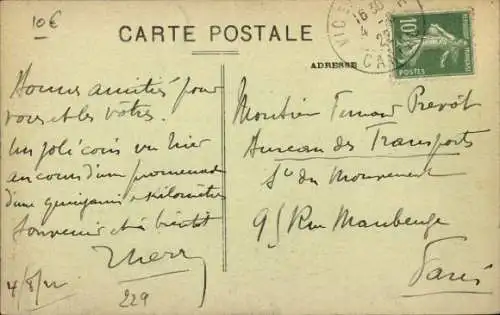 10€
CARTE POSTALE
ADRESSE
16 30
10c
POSTES
Bonnes amitiés pour
vous et les vôtres.
Un joli coin vu hier
au cours d'une promenade
d'une quinzaine de kilomètres
Souvenir et à bientôt
4/8/22
229
Monsieur Fernand Prevôt
Bureau des Transports
Sce du Mouvement
95 Rue Maubeuge
Paris